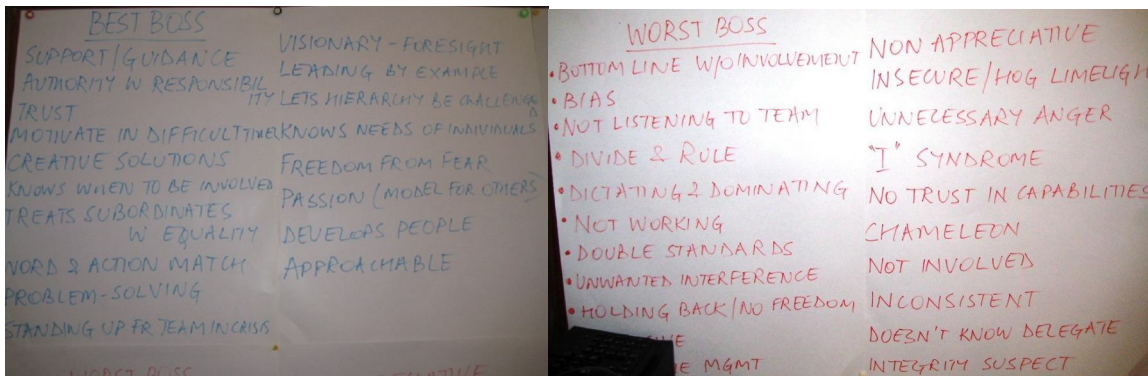 BEST BOSS
SUPPORT/GUIDANCE
AUTHORITY W RESPONSIBIL
ITY
TRUST
MOTIVATE IN DIFFICULT TIMES
CREATIVE SOLUTIONS
KNOWS WHEN TO BE INVOLVED
TREATS SUBORDINATES
W EQUALITY
WORD & ACTION MATCH
PROBLEM-SOLVING
STANDING UP FR TEAM IN CRISIS
WORST BOSS
VISIONARY - FORESIGHT
LEADING BY EXAMPLE
LETS HIERARCHY BE CHALLENGE
D
KNOWS NEEDS OF INDIVIDUALS
FREEDOM FROM FEAR
PASSION (MODEL FOR OTHERS)
DEVELOPS PEOPLE
APPROACHABLE
WORST BOSS
• BOTTOM LINE W/O INVOLVEMENT
• BIAS
• NOT LISTENING TO TEAM
• DIVIDE & RULE
• DICTATING & DOMINATING
• NOT WORKING
• DOUBLE STANDARDS
• UNWANTED INTERFERENCE
• HOLDING BACK/NO FREEDOM
MGMT
NON APPRECIATIVE
INSECURE/HOG LIMELIGH
UNNECESSARY ANGER
"I" SYNDROME
NO TRUST IN CAPABILITIES
CHAMELEON
NOT INVOLVED
INCONSISTENT
DOESN'T KNOW DELEGATE
INTEGRITY SUSPECT